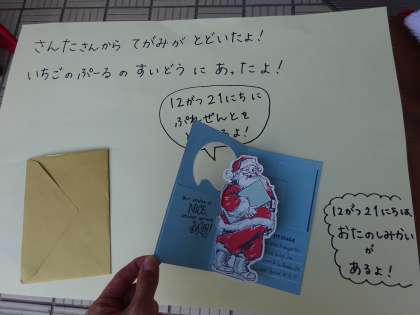 さんたさんから てがみが とどいたよ！
いちごのぷーる の すいどう に あったよ！
12がつ21にちに
ぷれぜんとを
よ！
12がつ21にちは、
おたのしみかい
が
あるよ！
NICE